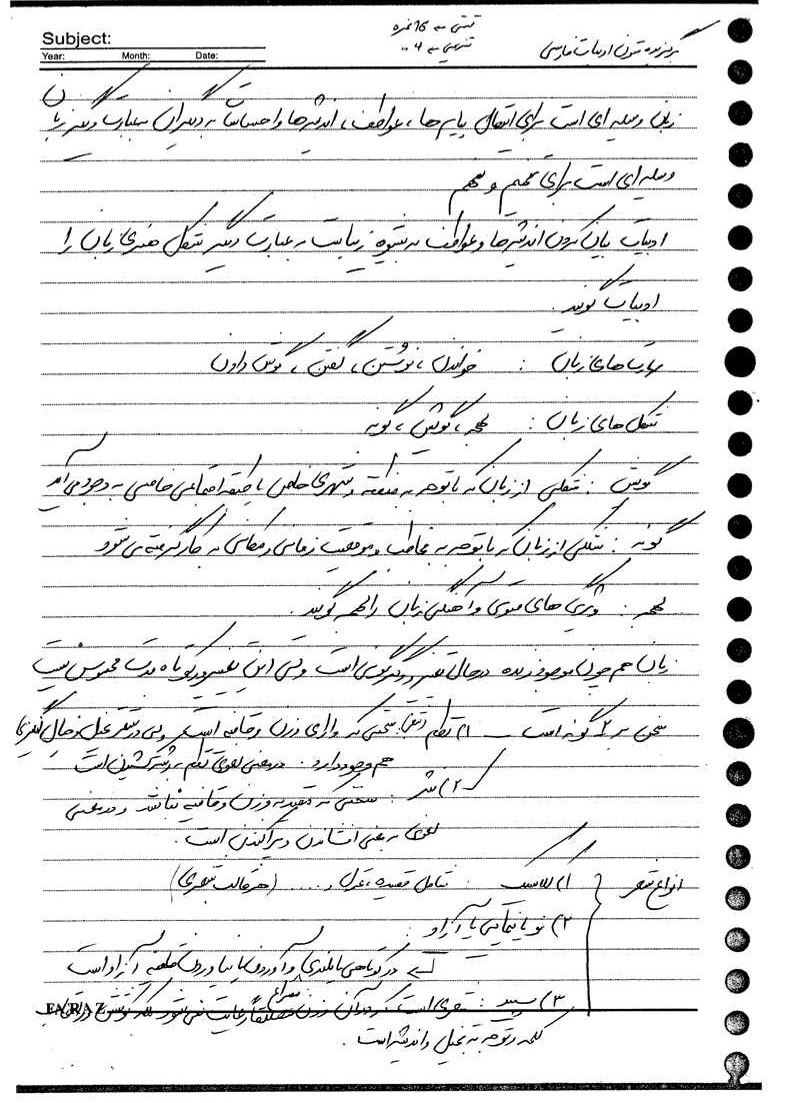 Subject:
Year: Month: Date:
تستی ← 16 نمره
تشریحی ← 4 ..
برگزیده متون ادبیات فارسی
زبان وسیله ای است برای انتقال پیام ها ، عواطف ، اندیشه ها و احساسات به دیگران به عبارت دیگر زبان
وسیله ای است برای تفهیم و تفهم
ادبیات بیان کردن اندیشه ها و عواطف به شیوه زیباست به عبارت دیگر شکل هنری زبان را
ادبیات گویند .
مهارت های زبان : خواندن ، نوشتن ، گفتن ، گوش دادن
شکل های زبان : لهجه ، گویش ، گونه
گویش : شکلی از زبان که با توجه به منطقه و شهری خاص یا طبقه اجتماعی خاصی به وجود می آید
گونه : شکلی از زبان که با توجه به مخاطب و موقعیت زمانی و مکانی به کار گرفته می شود
لهجه : ویژگی های صوتی و آهنگی زبان را لهجه گویند .
زبان هم چون موجود زنده در حال تغییر و دگرگونی است ولی این تغییر در کوتاه مدت محسوس نیست
سخن بر 2 گونه است ← 1) نظم : سخنی که دارای وزن و قافیه است ولی در شعر تخیل و خیال انگیزی
هم وجود دارد . در معنی لغوی نظم به رشته کشیدن است
2) نثر : سخنی که مقید به وزن و قافیه نباشد و در معنی
لغوی به معنی افشاندن و پراکندن است .
انواع شعر 1) کلاسیک : شامل قصیده ، غزل و ..... (هر قالب شعری)
2) نو یا نیمایی یا آزاد :
← در کوتاهی یا بلندی و آوردن یا نیاوردن قافیه آزاد است
مصراع
3) سپید : شعری است که در آن وزن مطلقا رعایت نمی شود بلکه گوشش
کلمه و توجه به تخیل و اندیشه است .